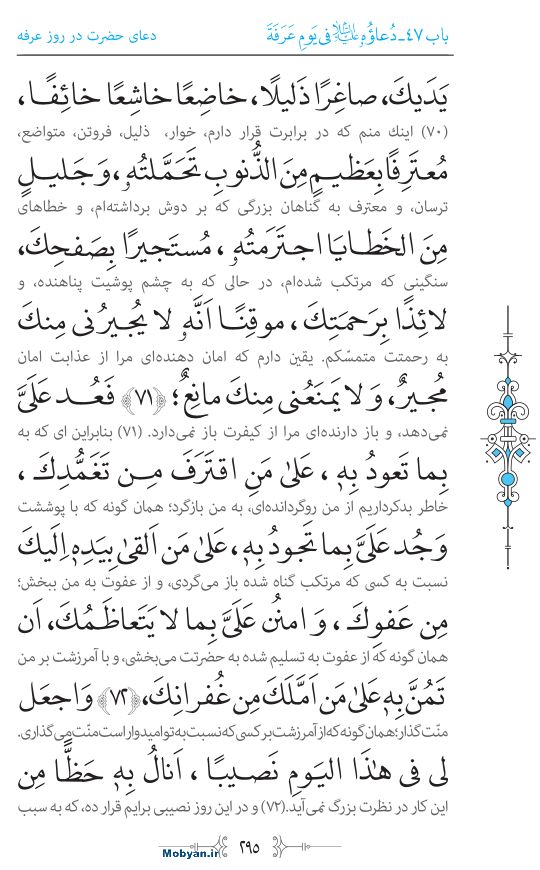 باب ۴۷ـ دُعاؤُهُ عليه‌السلام فی یَومِ عَرَفَةَ
دعای حضرت در روز عرفه
یَدَیكَ، صاغِرًا ذَلیلًا، خاضِعًا خاشِعًا خائِفًـا،
(۷۰) اینك منم كه در برابرت قرار دارم، خوار، ذلیل، فروتن، متواضع،
مُعتَرِفًا بِعَظیـمٍ مِنَ الذُّنوبِ تَحَمَّلتُهُ، وَ جَلیـلٍ
ترسان، و معترف به گناهان بزرگی که بر دوش برداشته‌ام، و خطاهای
مِنَ الخَطـایـا اجـتَرَمتُهُ، مُستَجیرًا بِصَفحِكَ،
سنگینی که مرتکب شده‌ام، در حالی که به چشم پوشیت پناهنده، و
لائِذًا بِرَحمَتِكَ، موقِنًـا اَنَّهُ لا یُجیرُنی مِنكَ
به رحمتت متمسّکم. یقین دارم که امان دهنده‌ای مرا از عذابت امان
مُجیرٌ، وَ لا یَمنَعُنی مِنكَ مانِعٌ؛ ﴿۷۱﴾ فَعُـد عَلَیَّ
نمی‌دهد، و باز دارنده‌ای مرا از کیفرت باز نمی‌دارد. (۷۱) بنابراین ای که به
بِما تَعودُ بِهِ، عَلیٰ مَنِ اقتَرَفَ مِـن تَغَمُّدِكَ،
خاطر بدکرداریم از من روگردانده‌ای، به من بازگرد؛ همان گونه که با پوششت
وَ جُد عَلَیَّ بِما تَجودُ بِهِ، عَلیٰ مَن اَلقیٰ بِیَدِهِ اِلَیكَ
نسبت به کسی که مرتکب گناه شده باز می‌گردی، و از عفوت به من ببخش؛
مِن عَفوِكَ، وَ امنُن عَلَیَّ بِمـا لا یَتَعاظَمُكَ، اَن
همان گونه که از عفوت به تسلیم شده به حضرتت می‌بخشی، و با آمرزشت بر من
تَمُنَّ بِهِ عَلیٰ مَن اَمَّلَكَ مِن غُفرانِكَ، ﴿۷۲﴾ وَ اجعَل
منّت گذار؛ همان گونه که از آمرزشت بر کسی که نسبت به تو امیدوار است منّت می‌گذاری.
لی فی هٰذَا الیَومِ نَصیـبًـا، اَنـالُ بِهِ حَظًّـا مِن
این کار در نظرت بزرگ نمی‌آید. (۷۲) و در این روز نصیبی برایم قرار ده، که به سبب
۲۹۵
Mobyan.ir